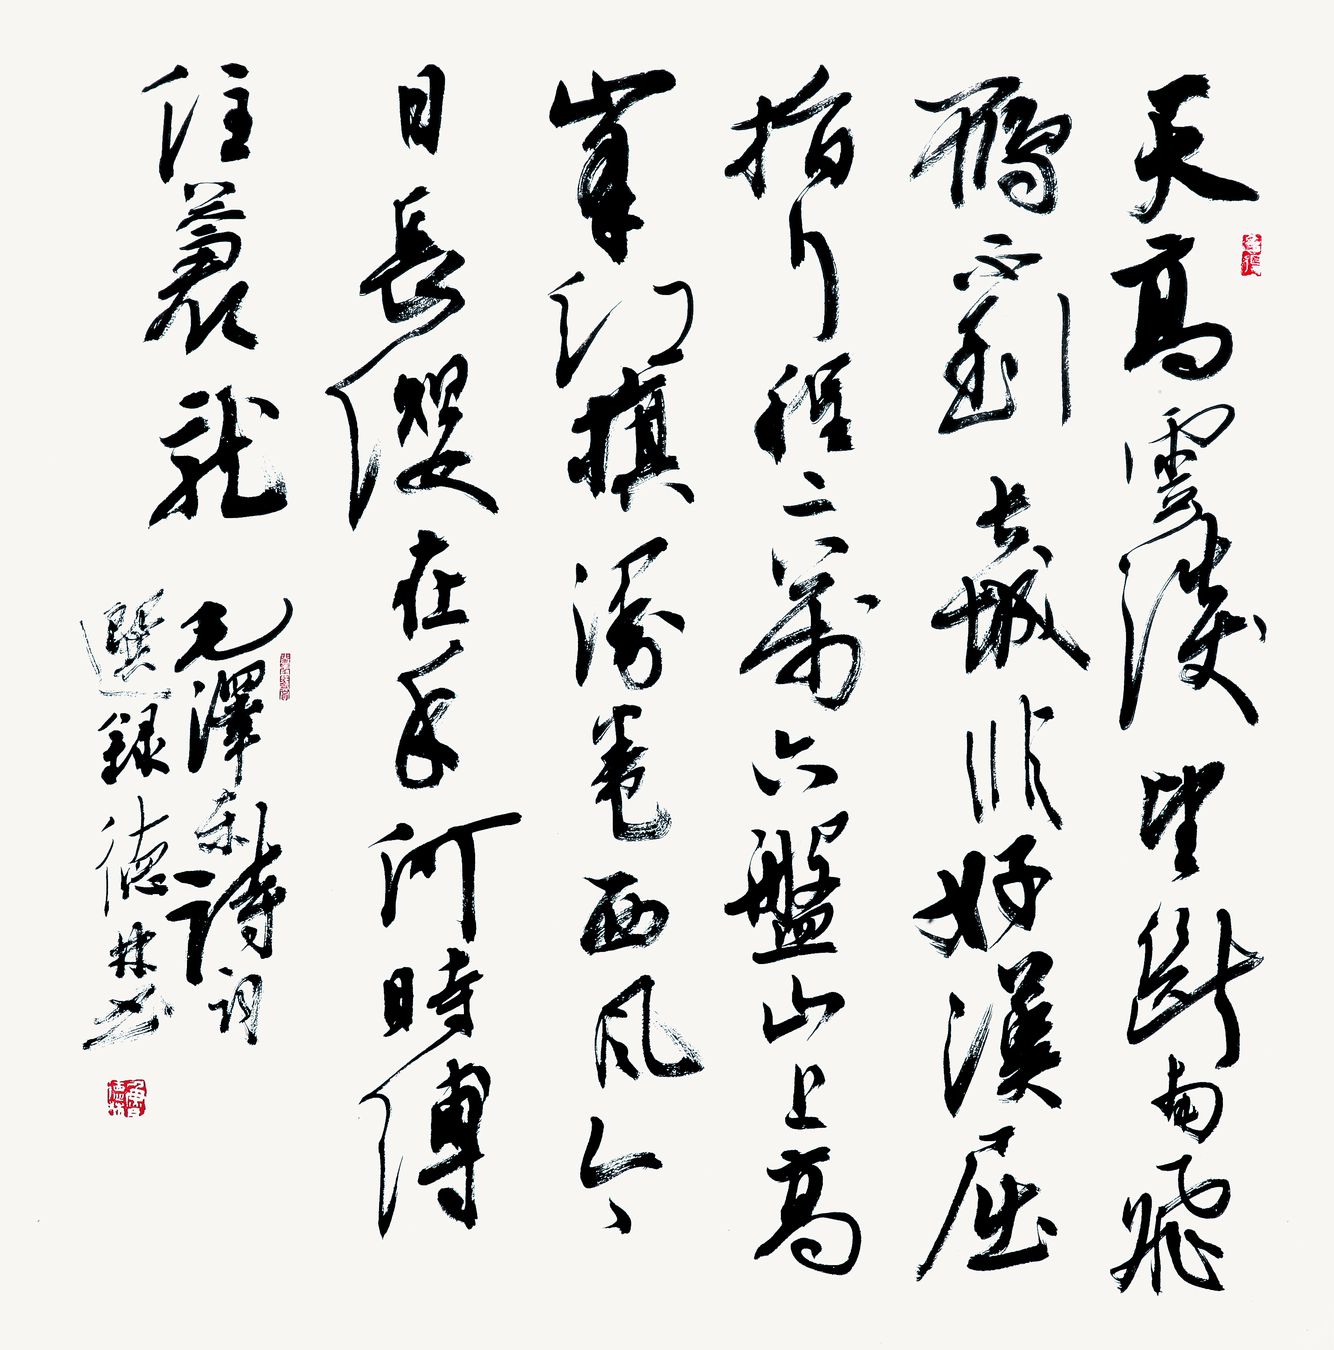 天高雲淡望斷南飛
鴈不到長城非好漢屈
指行程二萬六盤山上高
峯紅旗漫卷西风今
日長纓在手何時縛
住蒼龍
毛澤東詩詞
選録德林书